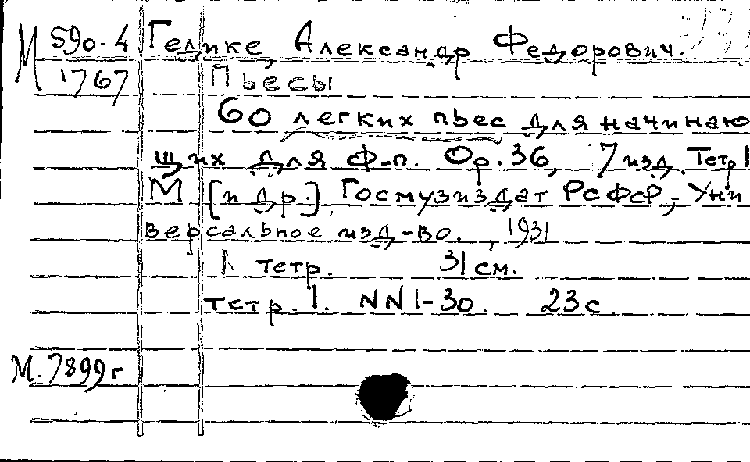 М 590-4 Гедике, Александр Федорович.
1767 Пьесы
60 легких пьес для начинаю
щих для ф-п. Op. 36, 7 изд. Тетр 1
М [и др.], Госмузиздат РСФСР, Уни
версальное изд-во., 1931
1 тетр. 31 см.
тетр. 1. NN 1-30. 23 с.
М. 7899г